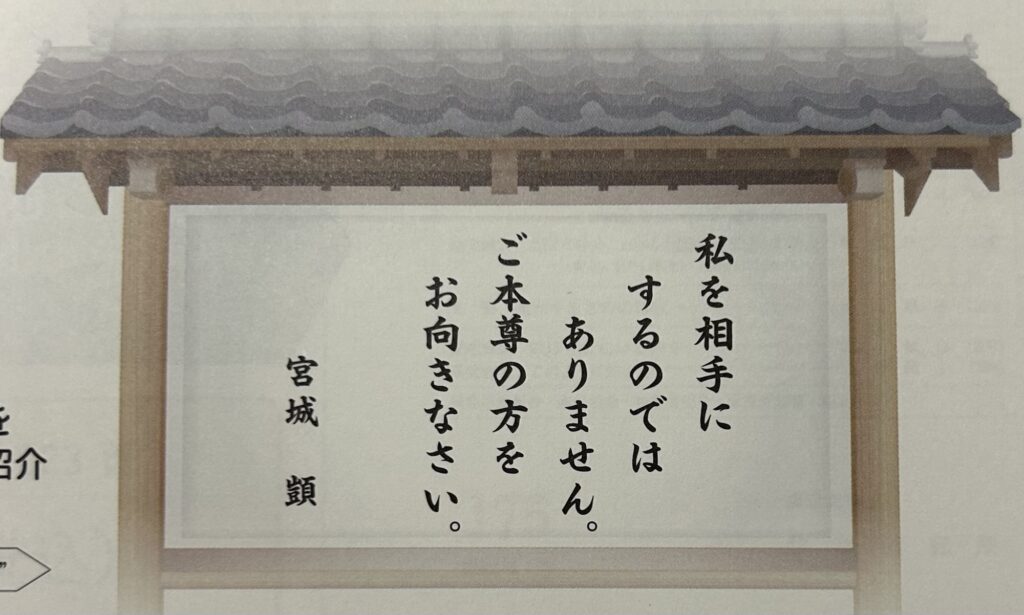 私を相手に
するのでは
ありません。
ご本尊の方を
お向きなさい。
宮城 顗
を
紹介
”